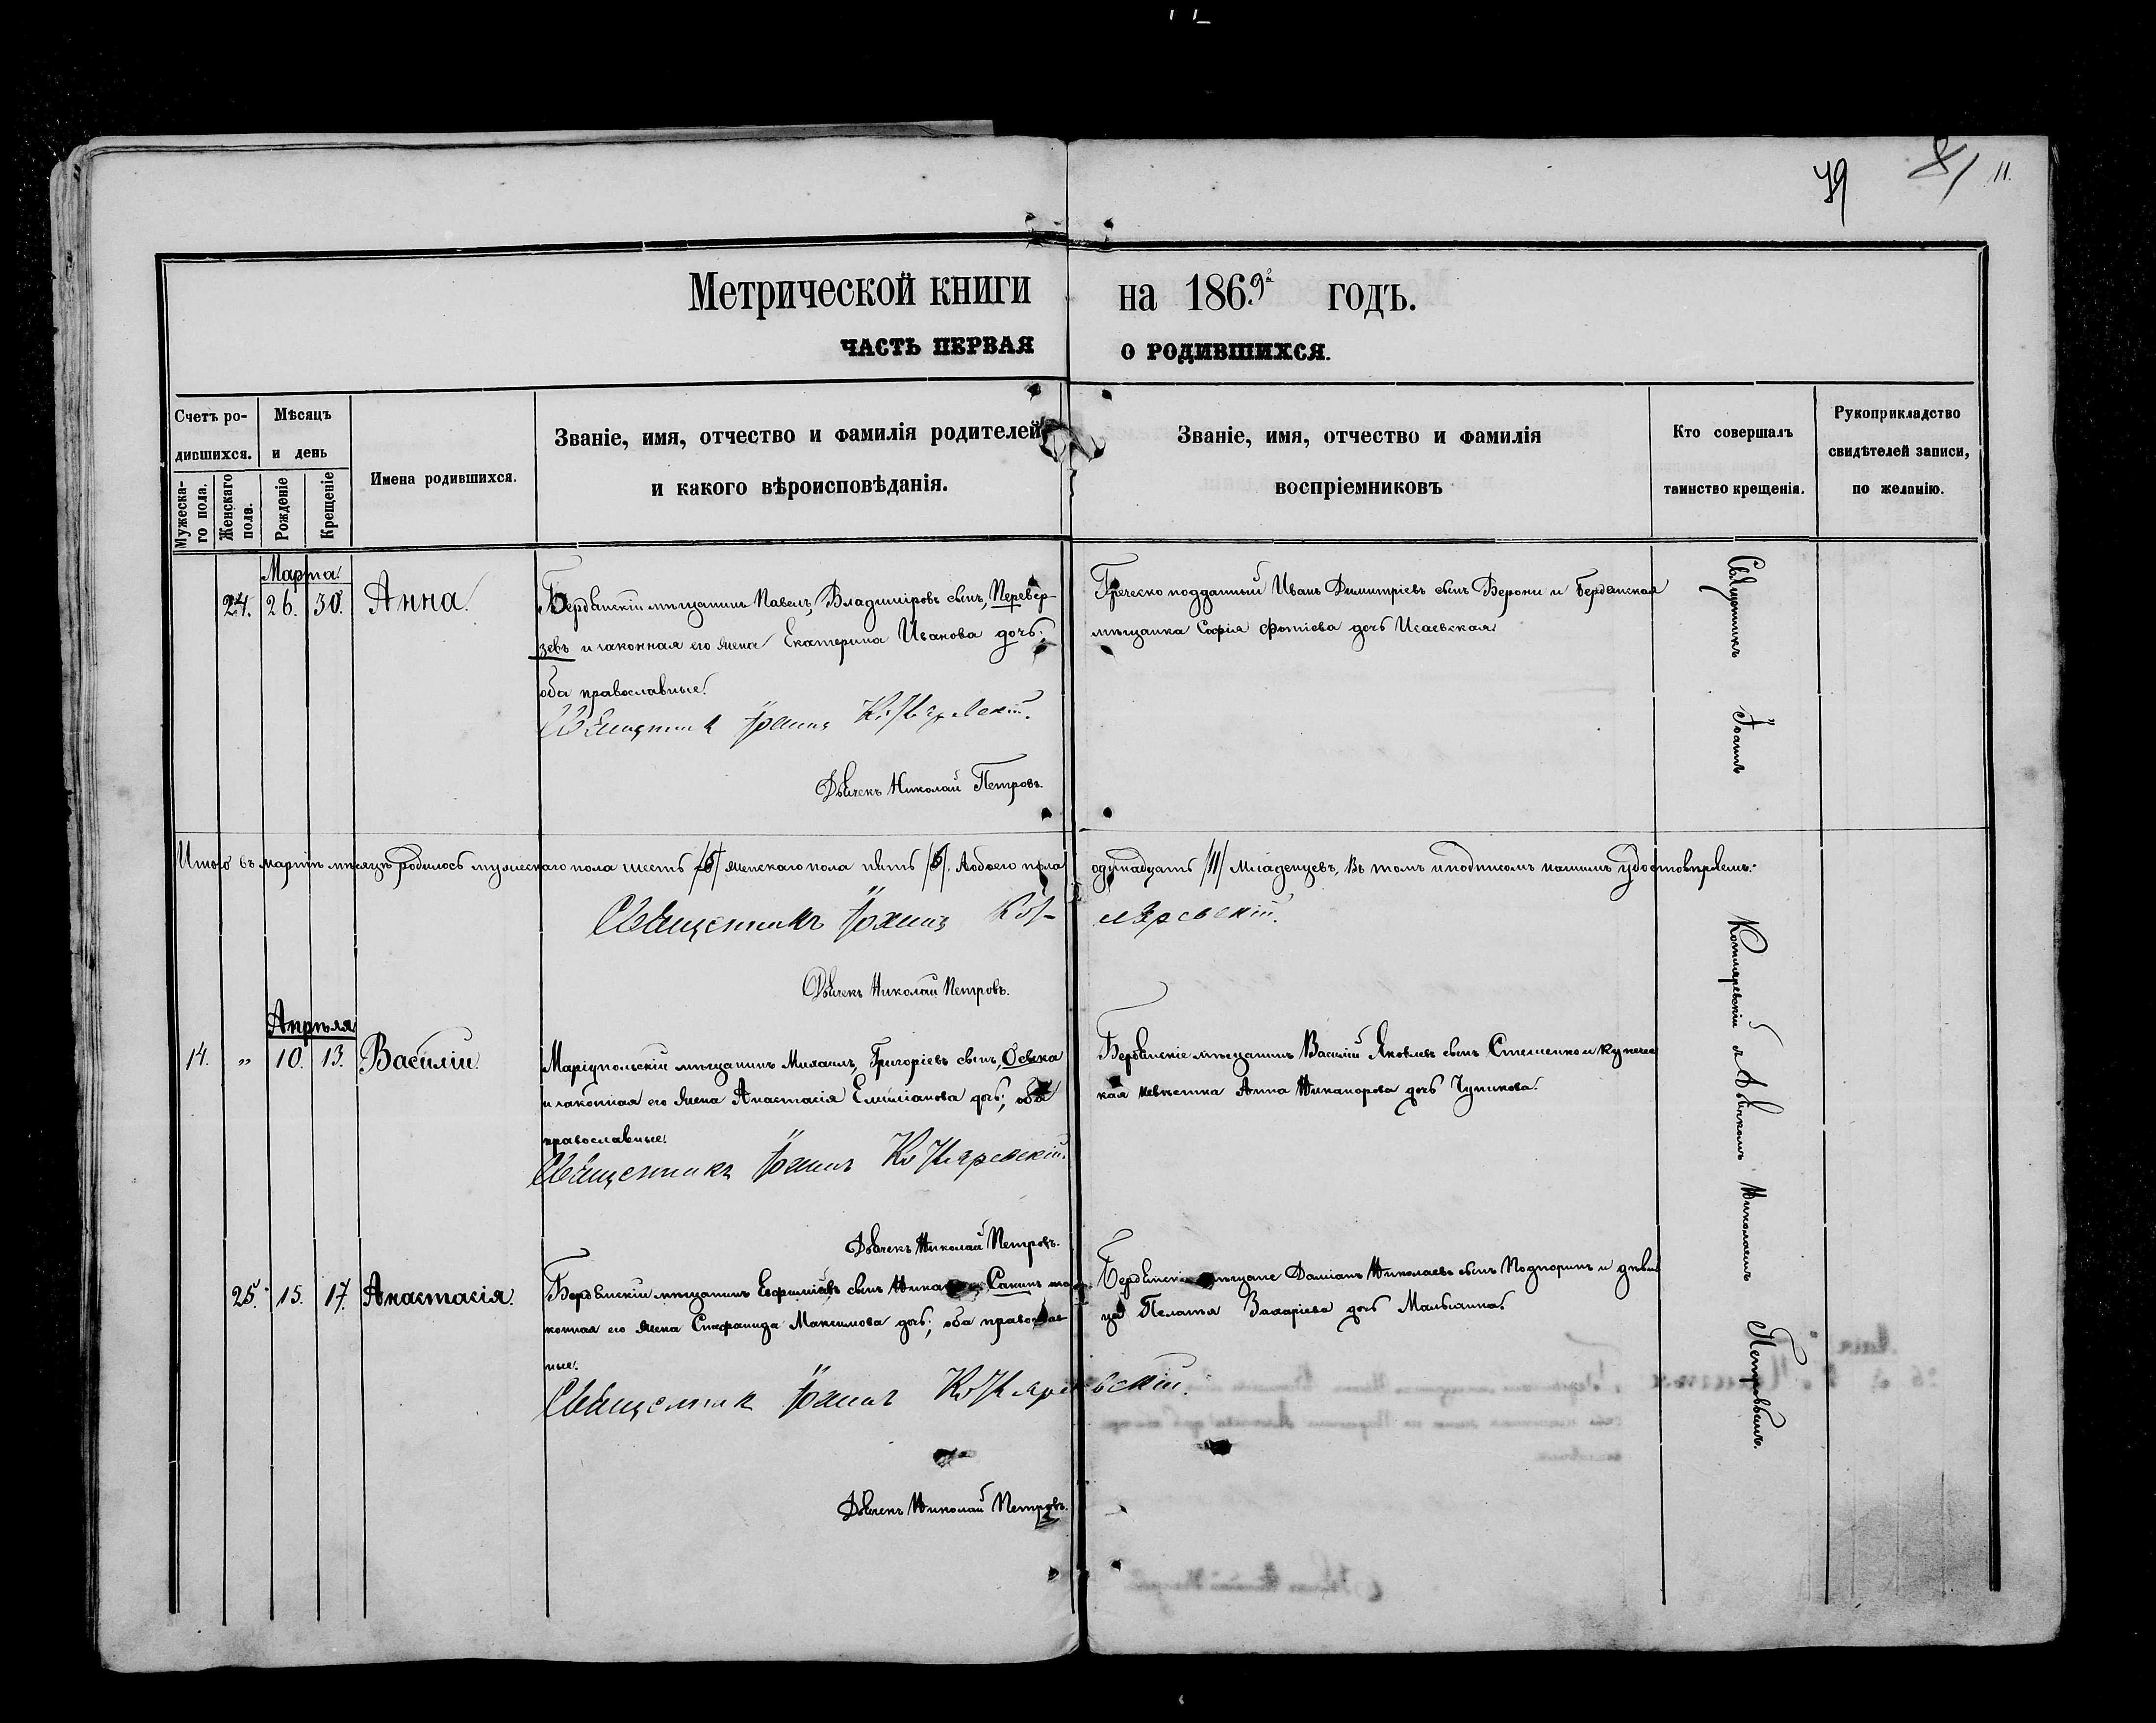 79 81 11.
Метрической книги на 1869 годъ.
ЧАСТЬ ПЕРВАЯ О РОДИВШИХСЯ.
Счетъ ро-
дившихся.
Мужеска-
го пола.
Женскаго
пола.
Мѣсяцъ
и день
Рожденіе
Крещеніе
Имена родившихся.
Званіе, имя, отчество и фамилія родителей
и какого вѣроисповѣданія.
Званіе, имя, отчество и фамилія
воспріемниковъ
Кто совершалъ
таинство крещенія.
Рукоприкладство
свидѣтелей записи,
по желанію.
Марта
24. 26. 30. Анна.
Бердянскій мѣщанинъ Павелъ, Владиміровъ сынъ, Перевер-
зевъ и законная его жена Екатерина Иванова дочь;
оба православные.
Священникъ Іоаннъ Котляревскій.
Дьячекъ Николай Петровъ.
Греческо подданный Иванъ Димитріевъ сынъ Верони и бердянская
мѣщанка Софія Фотіева дочь Исаевская
Итого въ мартѣ мѣсяцѣ родилось мужескаго пола шесть /6/ женскаго пола пять /5/. Обоего пола одинадцать /11/ младенцевъ, Въ томъ и подписомъ нашимъ удостовѣряемъ:
Священникъ Іоаннъ Котляревскій.
Дьячекъ Николай Петровъ.
Апрѣля
14. „ 10. 13. Василій.
Маріупольскій мѣщанинъ Михаилъ, Григоріевъ сынъ,
и законная его жена Анастасія Емиліанова дочь; оба
православные.
Священникъ Іоаннъ Котляревскій.
Дьячекъ Николай Петровъ.
Бердянскіе мѣщанинъ Василій Яковлевъ сынъ Стешенко и купечес
кая невѣстка Анна Никанорова дочь Чупикова.
25. 15. 17. Анастасія.
Бердянскій мѣщанинъ Сапинъ
конная его жена Максимова дочь; оба православ
ные.
Священникъ Іоаннъ Котляревскій.
Дьячекъ Николай Петровъ.
мѣщане Даміанъ Николаевъ сынъ Подпоринъ и дѣви
ца Пелагія Захаріева дочь
Священникъ Іоаннъ Котляревскій съ дьячкомъ Николаемъ Петровымъ.